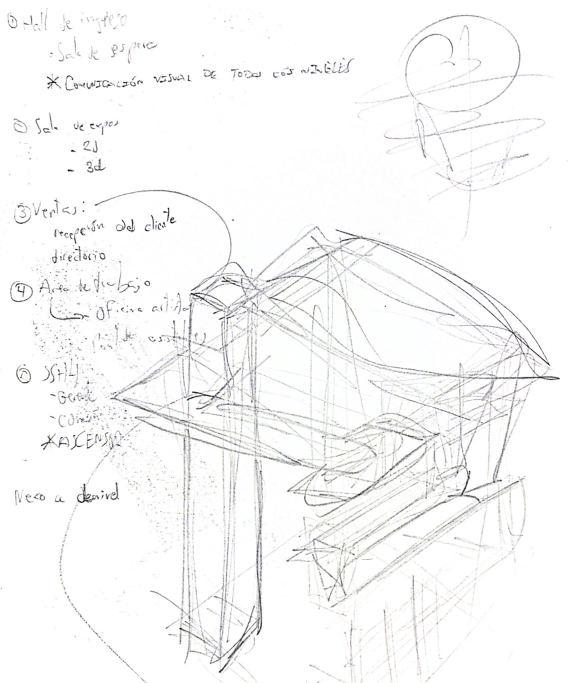 ① Hall de ingreso
• Sala de espera
* COMUNICACIÓN VISUAL DE TODOS LOS NIVELES
② Sala de expos
- 2d
- 3d
③ Ventas:
recepción del cliente
directorio
④ Area de trabajo
oficina artista
⑤ SSHH
- Gerente
-
* ASCENSOR
Nexo a desnivel